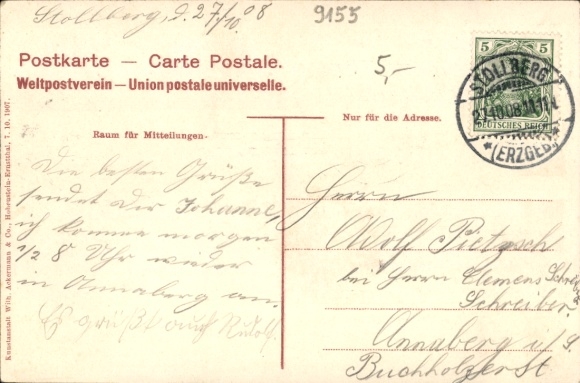 Stollberg, d. 27/10 08
9155
Postkarte — Carte Postale.
Weltpostverein — Union postale universelle.
5,-
5 5
DEUTSCHES REICH
STOLLBERG
27.10.08.11-12
* (ERZGEB.) *
Raum für Mitteilungen.
Nur für die Adresse.
Die besten Grüße
sendet Dir Johanne,
ich komme morgen
1/2 8 Uhr wieder
in Annaberg an.
Es grüßt auch Rudolf.
Herrn
Adolf Pietzsch
bei Herrn Clemens
Schreiber
Annaberg i/S.
Buchholzerst
Kunstanstalt Wilh. Ackermann & Co., Hohenstein-Ernstthal, 7. 10. 1907.